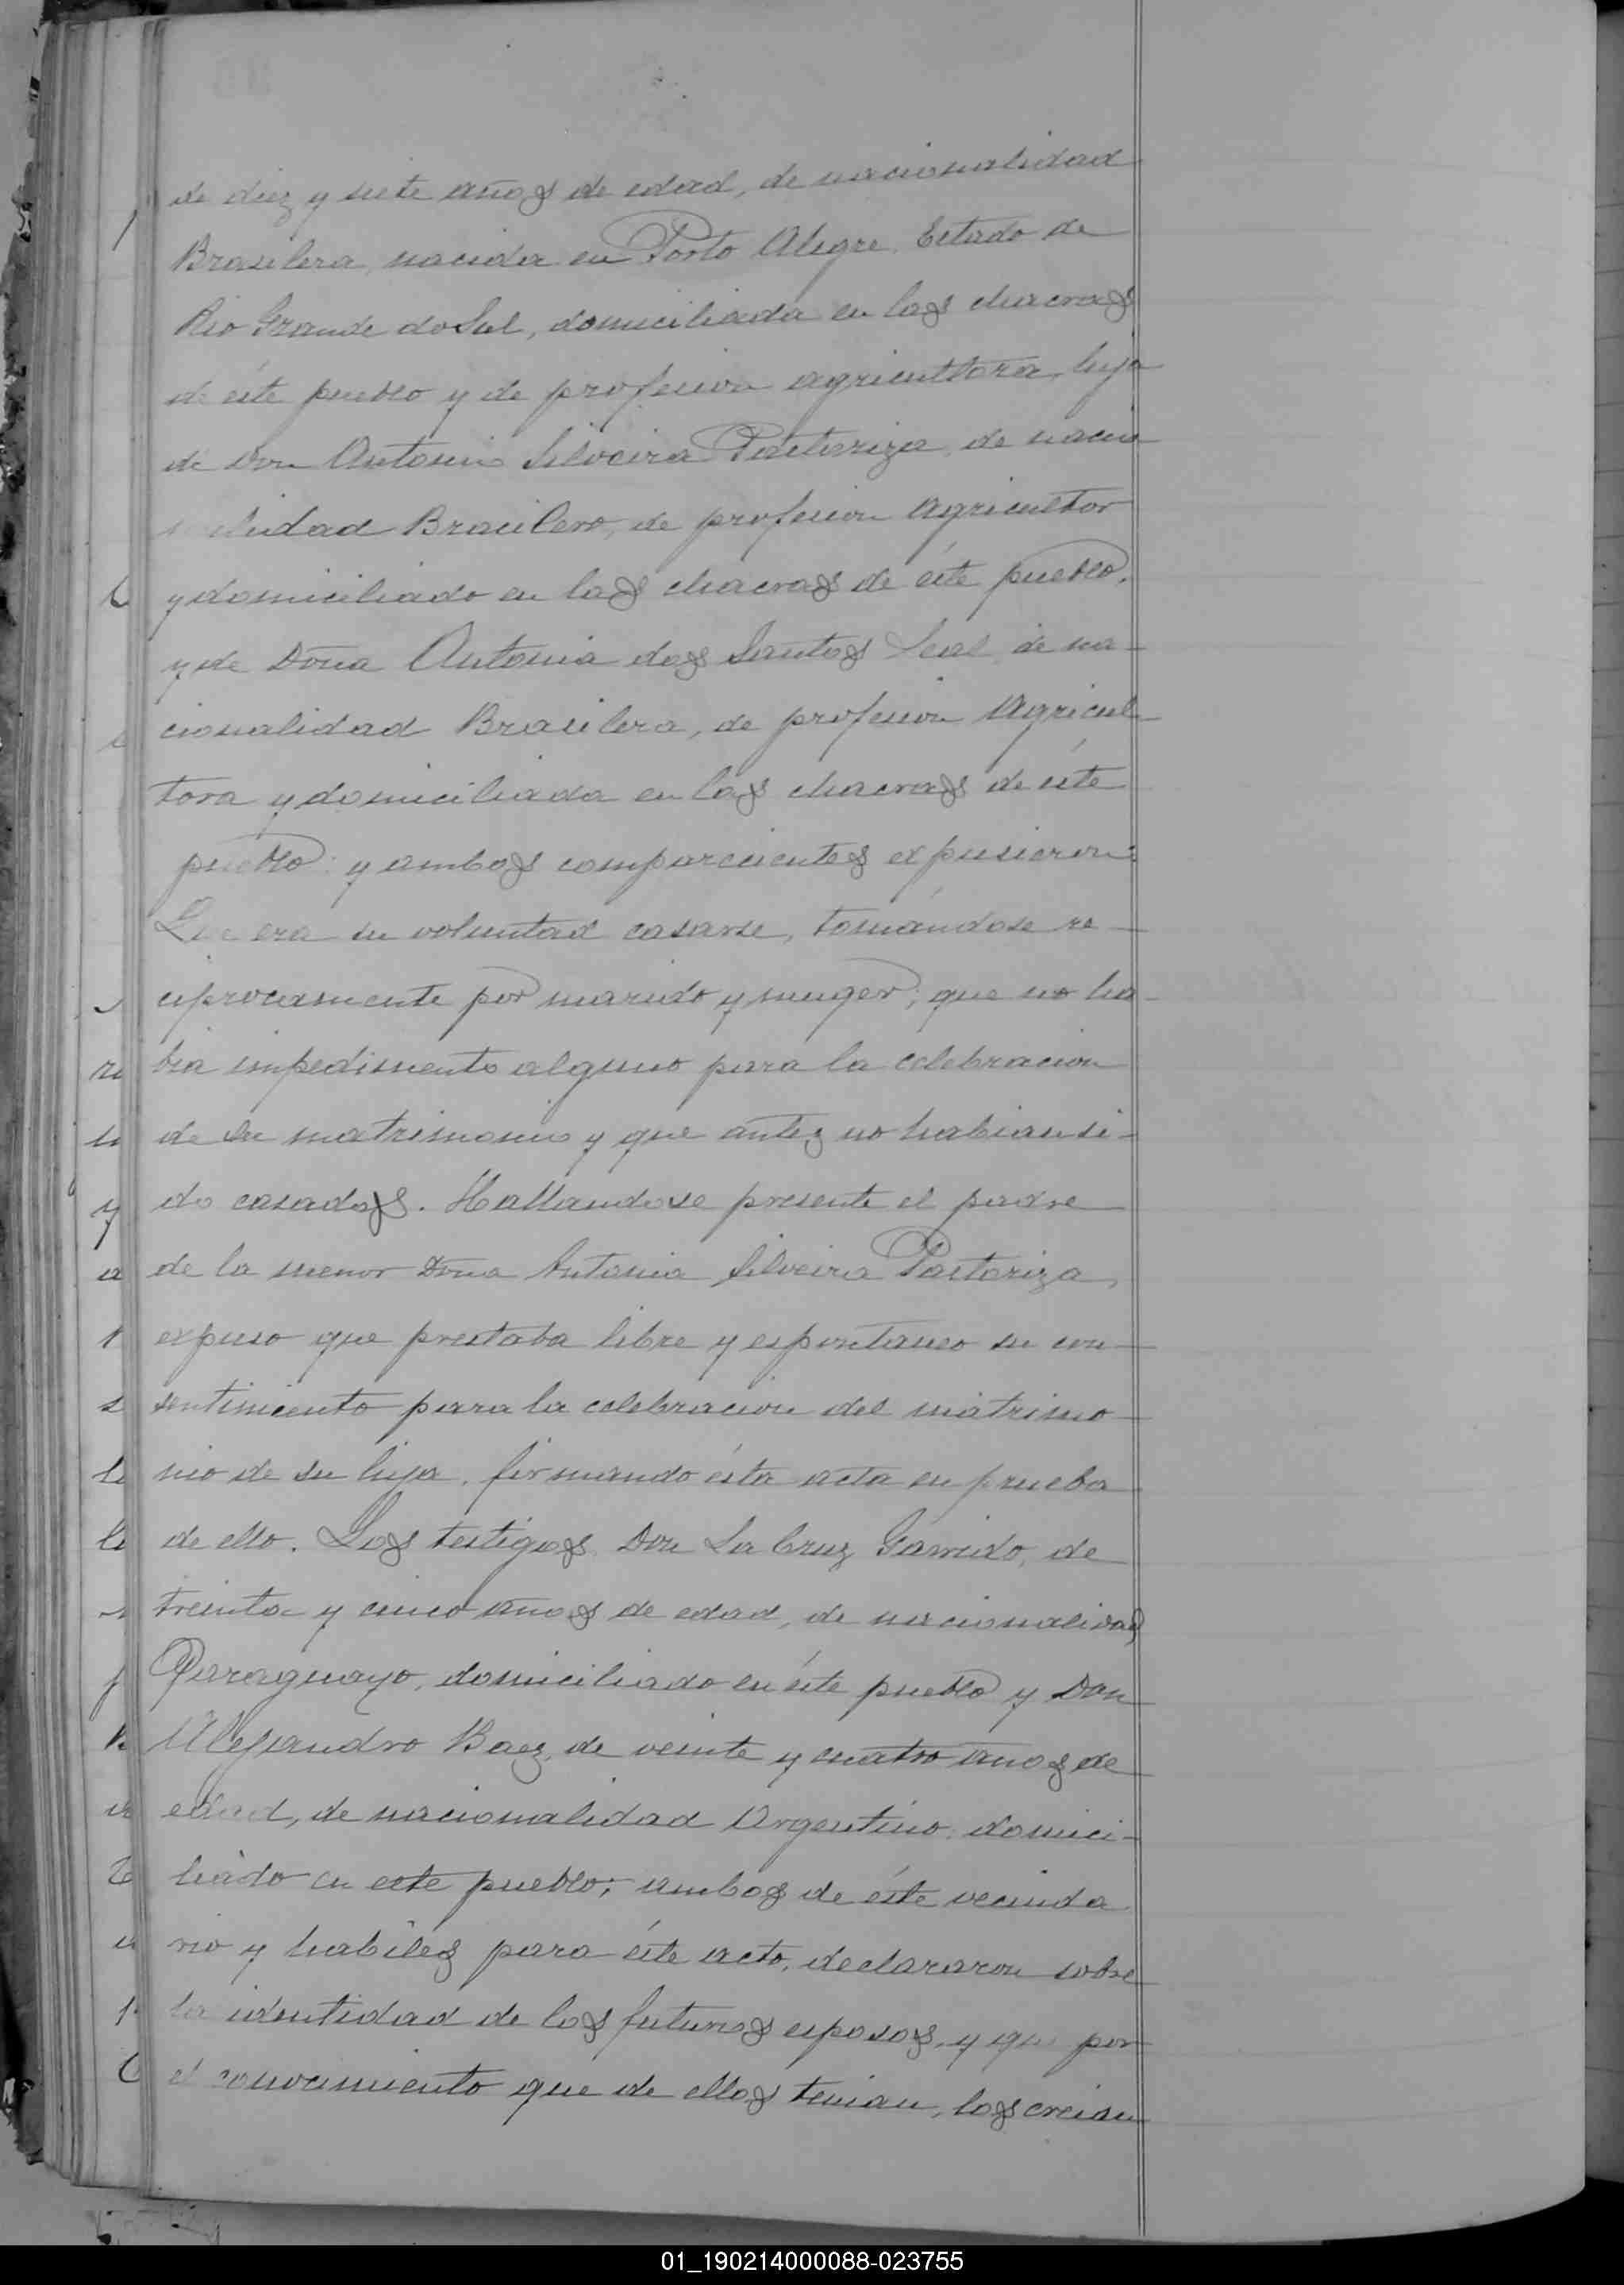 de diez y siete años de edad, de nacionalidad
Brasilera, nacida en Porto Alegre, Estado de
Rio Grande do Sul, domiciliada en las chacras
de éste pueblo y de profesion agricultora, hija
de Don Antonio Silveira Pastoriza, de nacio
nalidad Brasilero, de profesion Agricultor
y domiciliado en las chacras de éste pueblo,
y de Doña Antonia dos Santos Leal, de na-
cionalidad Brasilera, de profesion Agricul-
tora y domiciliada en las chacras de éste
pueblo: y ambos comparecientes expusieron:
Que era su voluntad casarse, tomándose re-
ciprocamente por marido y muger; que no ha-
bia impedimento alguno para la celebracion
de su matrimonio y que antes no habian si-
do casados. Hallandose presente el padre
de la menor Doña Antonia Silveira Pastoriza,
expuso que prestaba libre y espontaneo su con-
sentimiento para la celebracion del matrimo-
nio de su hija, firmando ésta acta en prueba
de ello. Los testigos Don La Cruz Garrido, de
treinta y cinco años de edad, de nacionalidad
Paraguayo, domiciliado en éste pueblo y Don
Alejandro Baez, de veinte y cuatro años de
edad, de nacionalidad Argentino, domici-
liado en este pueblo; ambos de éste vecinda
rio y habiles para éste acto, declararon sobre
la identidad de los futuros esposos, y que por
el conocimiento que de ellos tenian, los creian
01_190214000088-023755